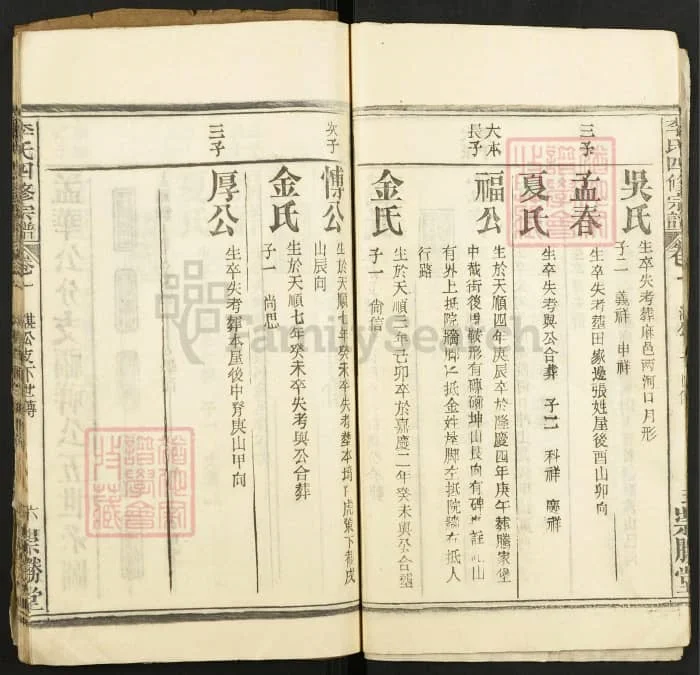 李氏四修宗譜
卷一
吳氏
生卒失考葬麻邑兩河口月形
子二 義祥 申祥
三子
孟春
生卒失考葬田家邊張姓屋後酉山卯向
夏氏
生卒失考與公合葬 子二 科祥 廣祥
大本
長子
福公
生於天順四年庚辰卒於隆慶四年庚午葬騰家堡
中截街後
坤山艮向有碑
有界上抵院牆脚下抵金姓屋脚左抵院牆右抵人
行路
金氏
生於天順三年己卯卒於嘉慶二年癸未與公合塋
子一 尚信
次子
博公
生於天順七年癸未卒失考葬本
虎巢下截戌
山辰向
金氏
生於天順七年癸未卒失考與公合葬
子一 尚思
三子
厚公
生卒失考葬本屋後中脊庚山甲向
李氏四修宗譜
卷一
湛公支下世傳
六
崇勝堂
FamilySearch